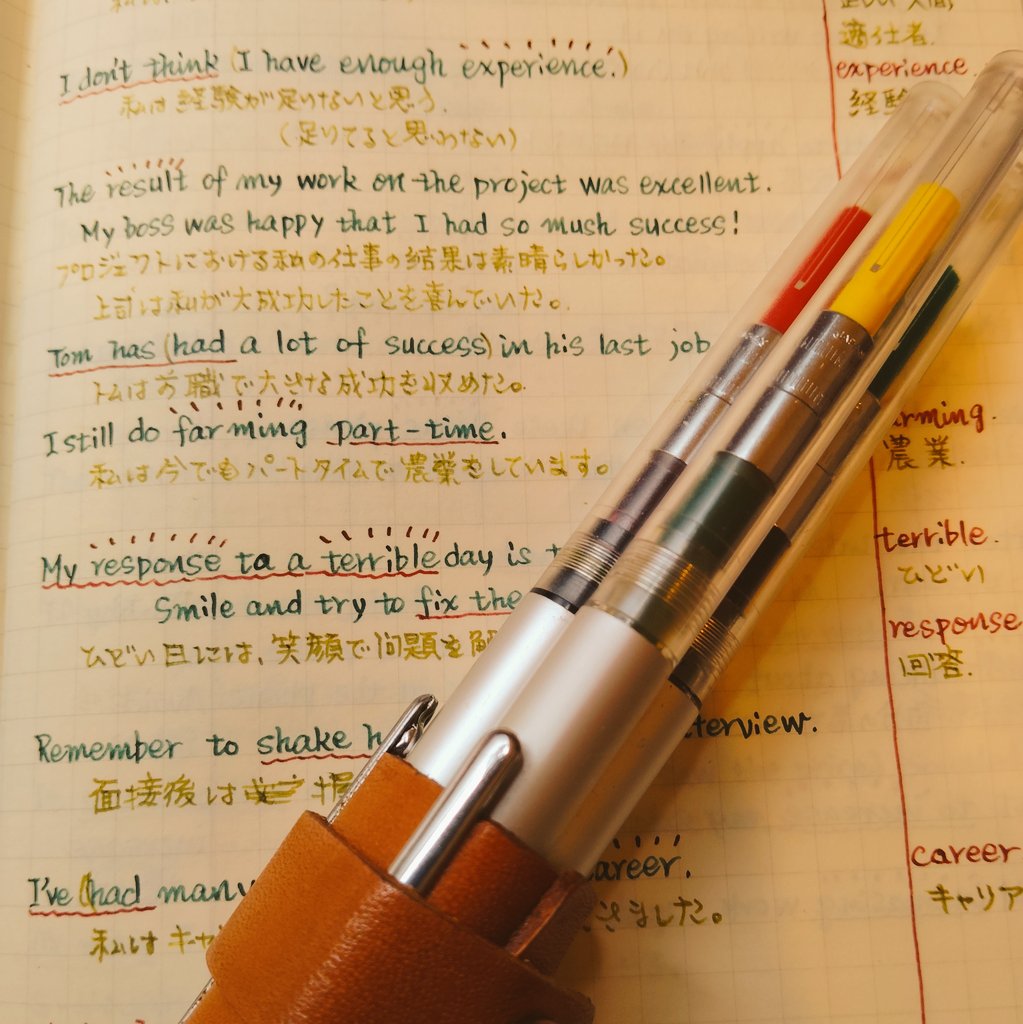 I don't think (I have enough experience.)
私は経験が足りないと思う.
(足りてると思わない)
The result of my work on the project was excellent.
My boss was happy that I had so mush success!
プロジェクトにおける私の仕事の結果は素晴らしかった。
上司は私が大成功したことを喜んでいた。
Tom has (had a lot of success) in his last job
トムは前職で大きな成功を収めた。
I still do farming part-time.
私は今でもパートタイムで農業をしています。
My response to a terrible day is
Smile and try to fix the
ひどい日には、笑顔で問題を
Remember to shake
terview.
面接後は
I've (had many
areer.
私はキャ
きました。
適任者.
experience.
経験
arming.
農業.
terrible.
ひどい
response
回答.
career
キャリア